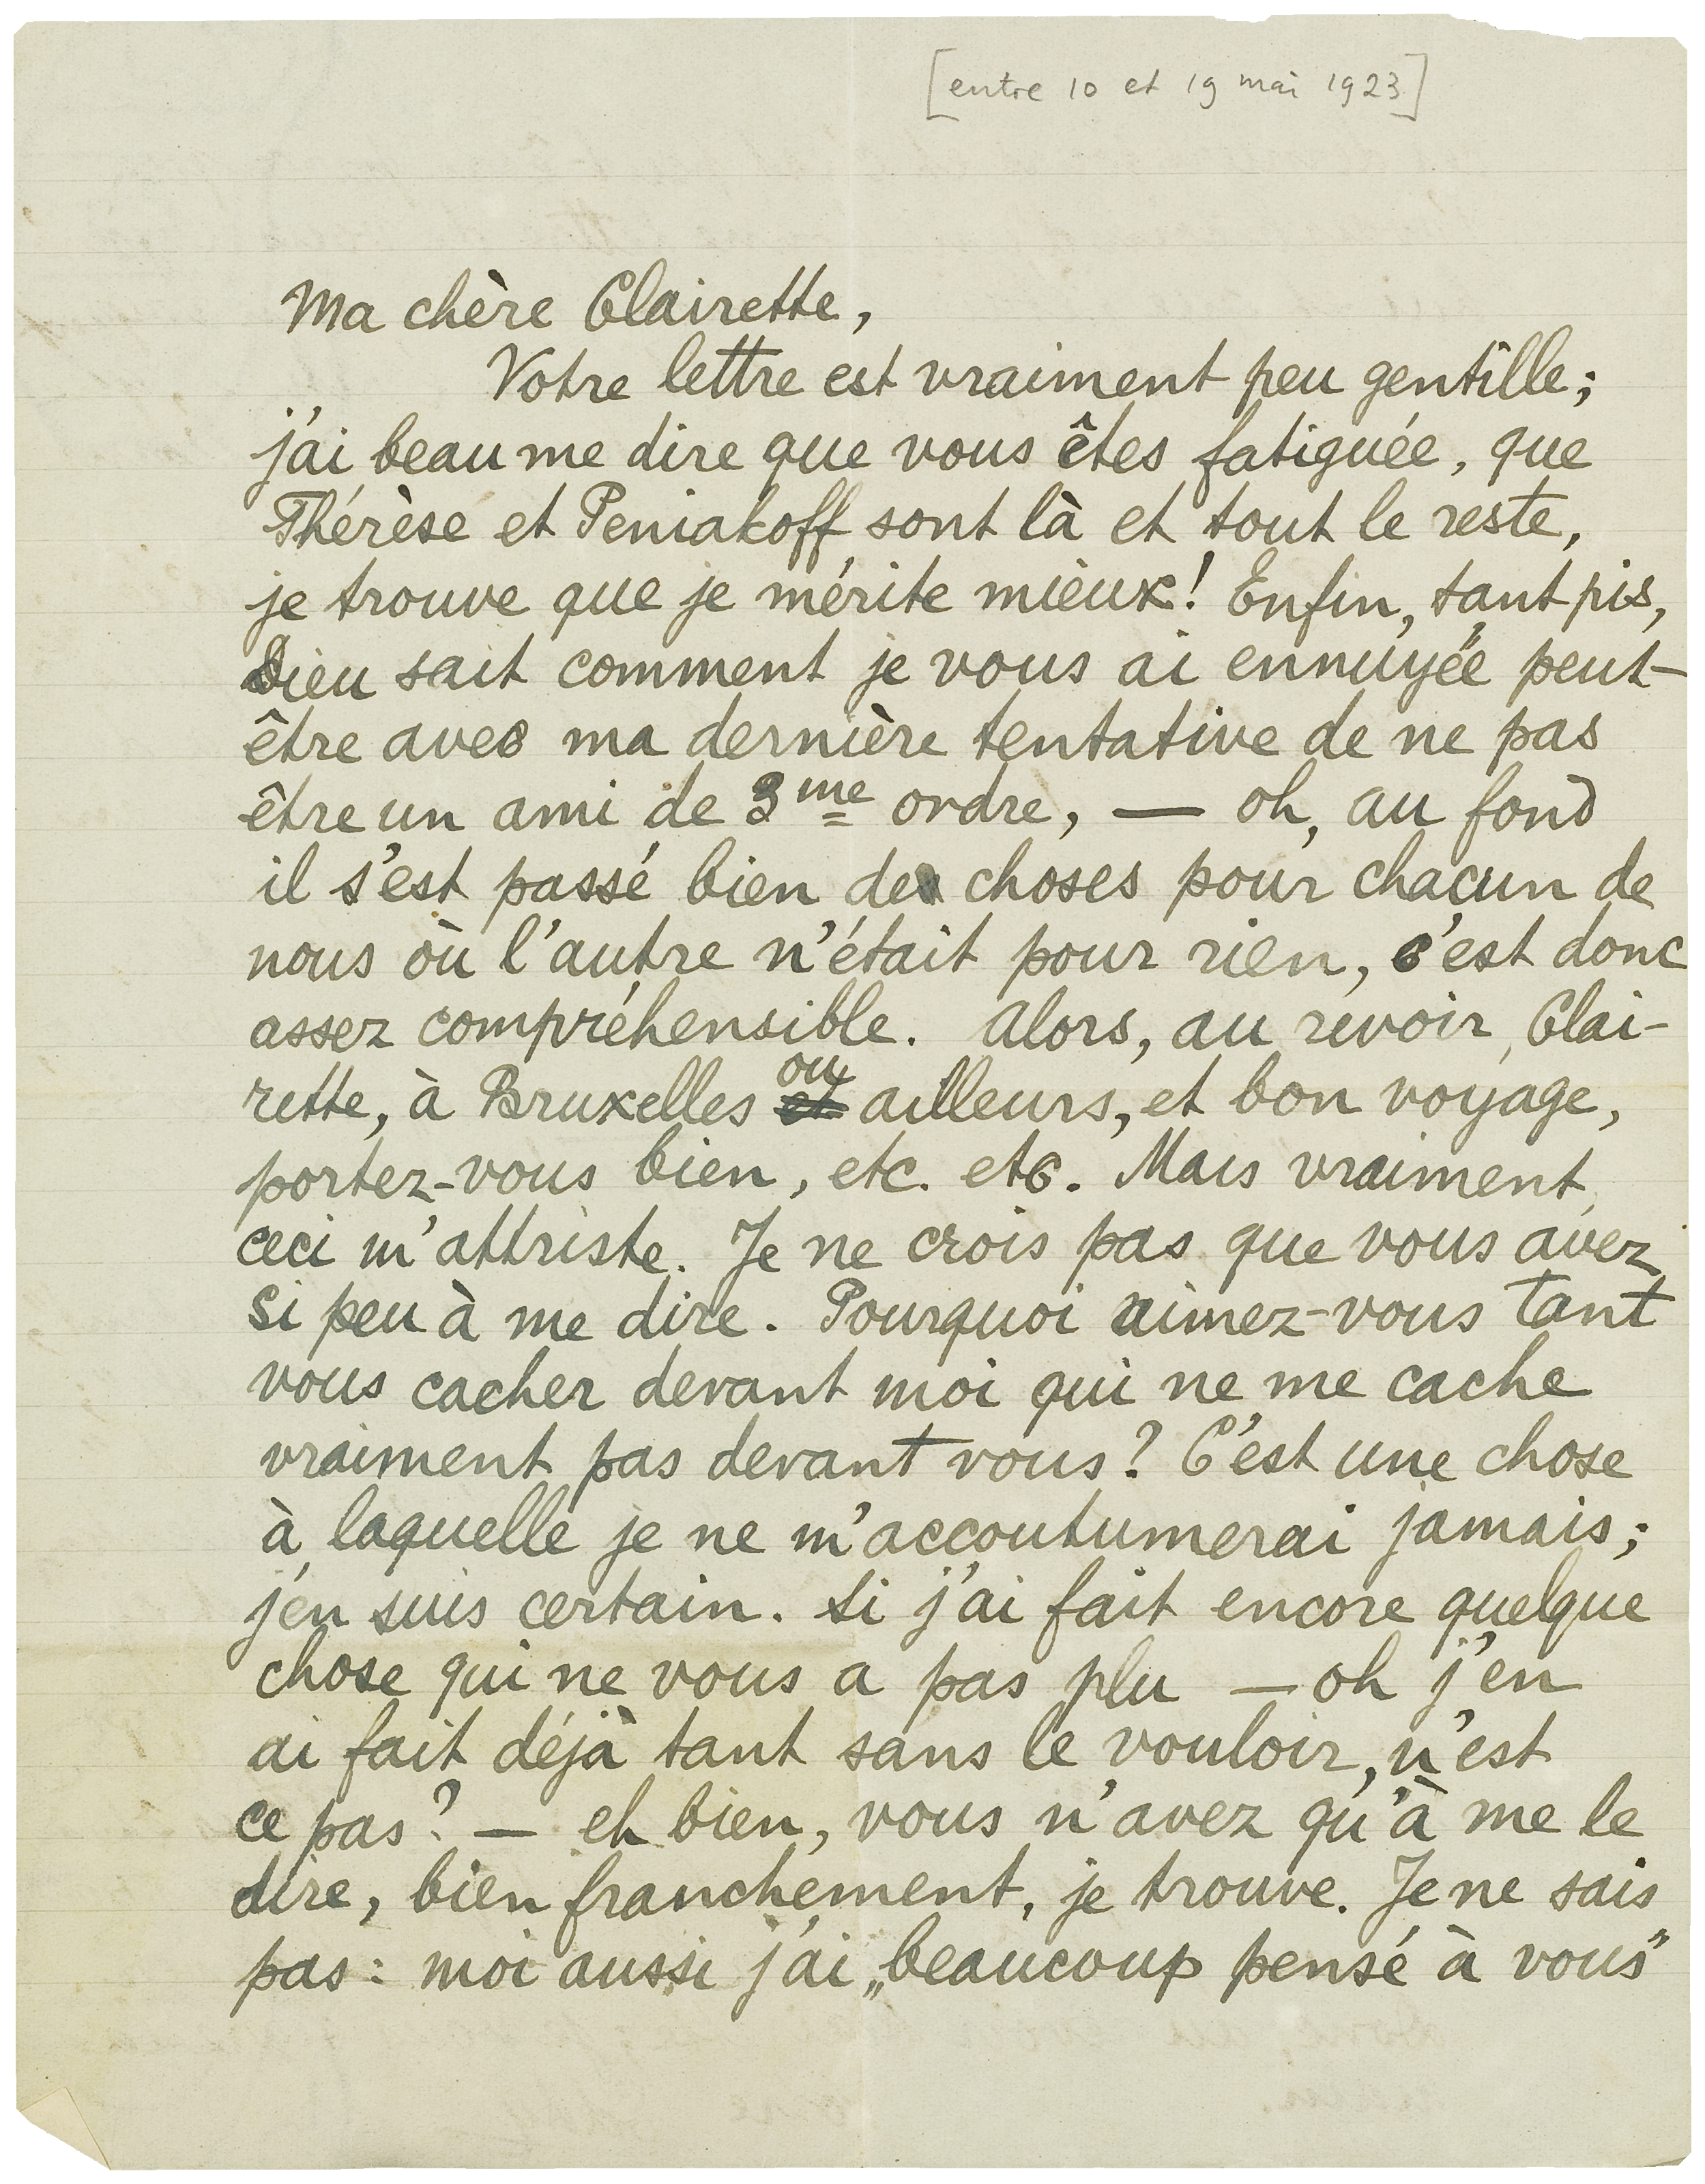 [entre 10 et 19 mai 1923]
Ma chère Clairette,
Votre lettre est vraiment peu gentille;
j'ai beau me dire que vous êtes fatiguée, que
Thérèse et Peniakoff sont là et tout le reste,
je trouve que je mérite mieux! Enfin, tant pis,
Dieu sait comment je vous ai ennuyée peut-
être avec ma dernière tentative de ne pas
être un ami de 3me ordre, — oh, au fond
il s'est passé bien des choses pour chacun de
nous où l'autre n'était pour rien, c'est donc
assez compréhensible. Alors, au revoir, Clai-
rette, à Bruxelles et ou ailleurs, et bon voyage,
portez-vous bien, etc. etc. Mais vraiment,
ceci m'attriste. Je ne crois pas que vous avez
si peu à me dire. Pourquoi aimez-vous tant
vous cacher devant moi qui ne me cache
vraiment pas devant vous? C'est une chose
à laquelle je ne m'accoutumerai jamais;
j'en suis certain. Si j'ai fait encore quelque
chose qui ne vous a pas plu — oh j'en
ai fait déjà tant sans le vouloir, n'est
ce pas? — eh bien, vous n'avez qu'à me le
dire, bien franchement, je trouve. Je ne sais
pas: moi aussi j'ai „beaucoup pensé à vous"